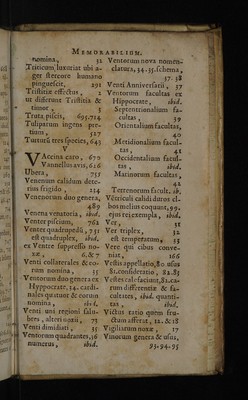 MEMORABILIUM.
nomina, 51
Triticum luxuriat ubi a-
ger stercore humano
pinguescit, 291
Tristitiæ effectus, 2
ut differant Tristitia &
timor, 3
Truta piscis, 695.714
Tuliparum ingens pre-
tium, 527
Turturũ tres species, 645
V
VAccina caro, 670
Vannellus avis, 616
Ubera, 755
Venenum calidum dete-
rius frigido, 224
Venenorum duo genera,
489
Venena venatoria, ibid.
Venter piscium, 762
Venter quadrupedũ, 751
est quadruplex, ibid.
ex Ventre suppresso no-
xæ, 6. & 7
Venti collaterales & eo-
rum nomina, 55
Ventorum duo genera ex
Hippocrate, 14. cardi-
nales quatuor & eorum
nomina, ibid.
Venti uni regimi salu-
bres, alteri noxii, 75
Venti dimidiati, 35
Ventorum quadrantes, 36
numerus, ibid.
Ventorum nova nomen-
clatura, 34. 35. schema,
37. 38
Venti Anniversarii, 57
Ventorum facultas ex
Hippocrate, ibid.
Septentrionalium fa-
cultas, 39
Orientalium facultas,
40
Meridionalium facul-
tas, 41
Occidentalium facul-
tas, ibid.
Marinorum facultas,
42
Terrenorum facult. ib.
Vetriculi calidi duros ci-
bos melius coquunt, 99.
ejus rei exempla, ibid.
Ver, 51
Ver triplex, 52
est temperatum, 53
Vere qui cibus conve-
niat, 166
Vestis appellatio, 80. usus
81. consideratio, 82. 83
Vestes calefaciunt, 82. ea-
rum differentiæ & fa-
cultates, ibid. quanti-
tas, ibid.
Victus ratio quem fru-
ctum afferat, 12. & 18
Vigiliarum noxæ, 17
Vinorum genera & usus,
93. 94. 95